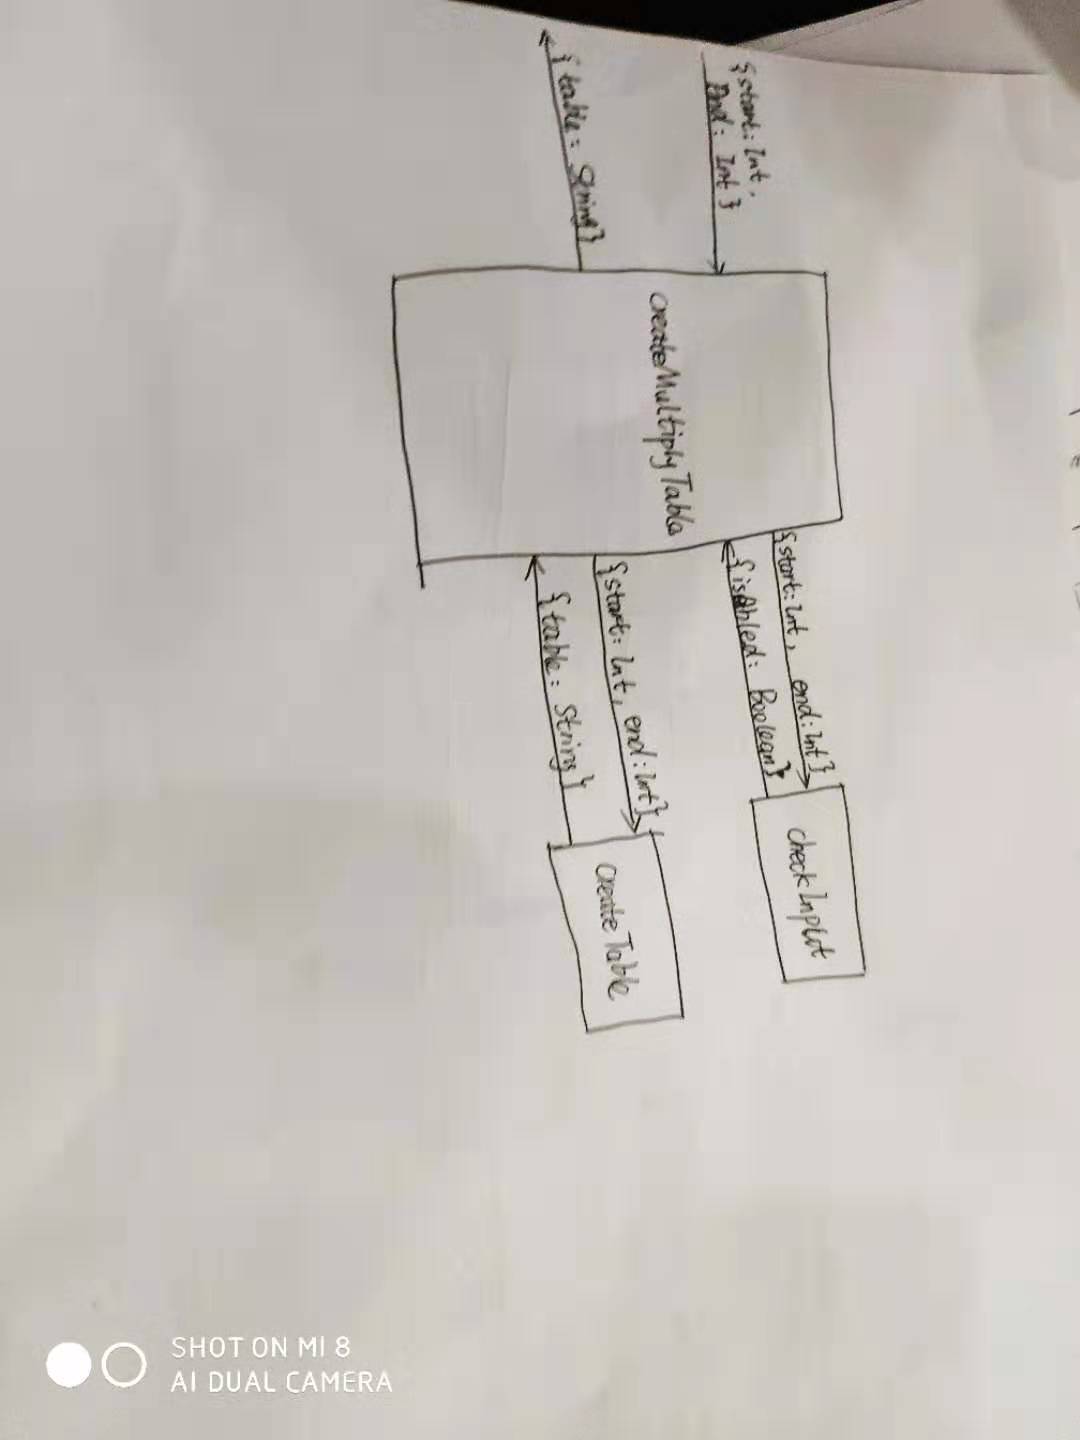 {start: Int,
End: Int}
{table: String}
createMultiplyTable
{start: Int, end: Int}
{isAbled: Boolean}
checkInput
{start: Int, end: Int}
{table: String}
createTable
SHOT ON MI 8
AI DUAL CAMERA